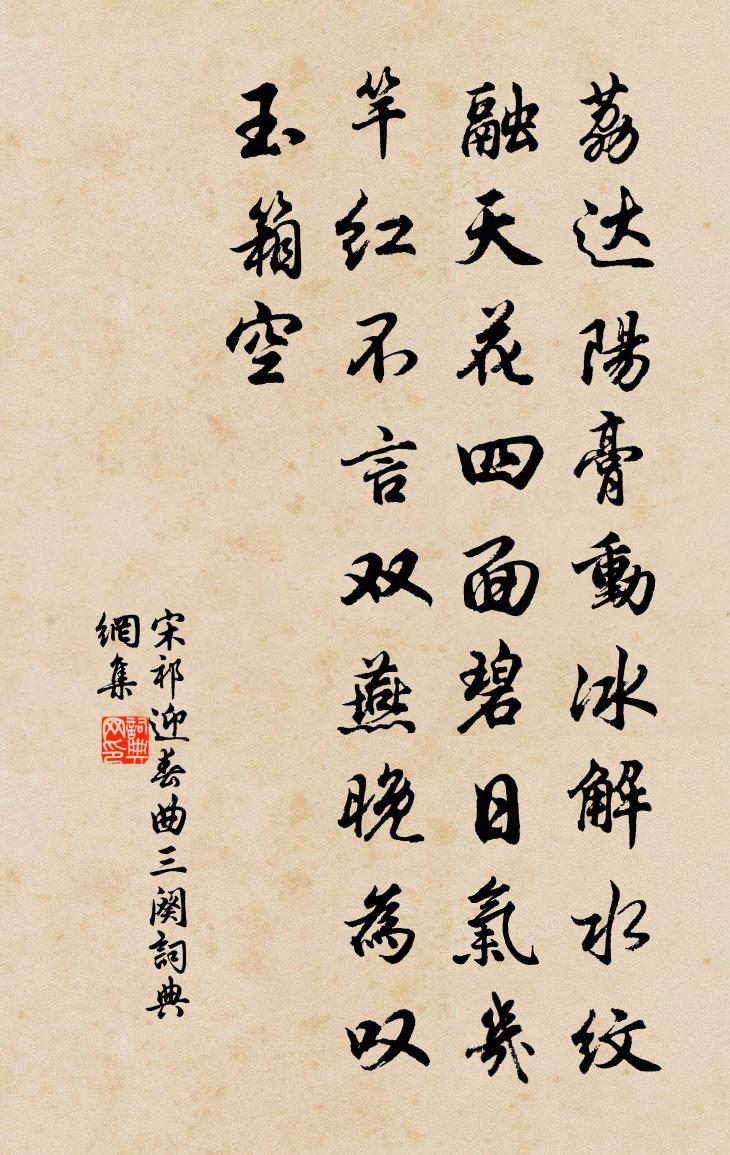 荔达陽膏動冰解水纹
融天花四面碧日氣幾
竿红不言双燕晚為叹
玉箱空
宋祁迎春曲三阕詞典
網集
詞典
网印